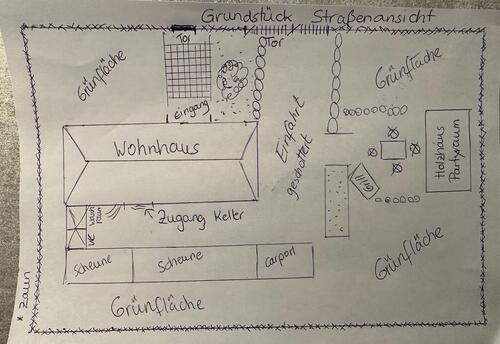 Grundstück Straßenansicht
Tor
Tor
Grünfläche
Grünfläche
Eingang
Einfahrt
geschottert
Wohnhaus
Holzhaus
Partyraum
Grill
Zugang Keller
Scheune
Scheune
Carport
Grünfläche
Grünfläche
* Zaun